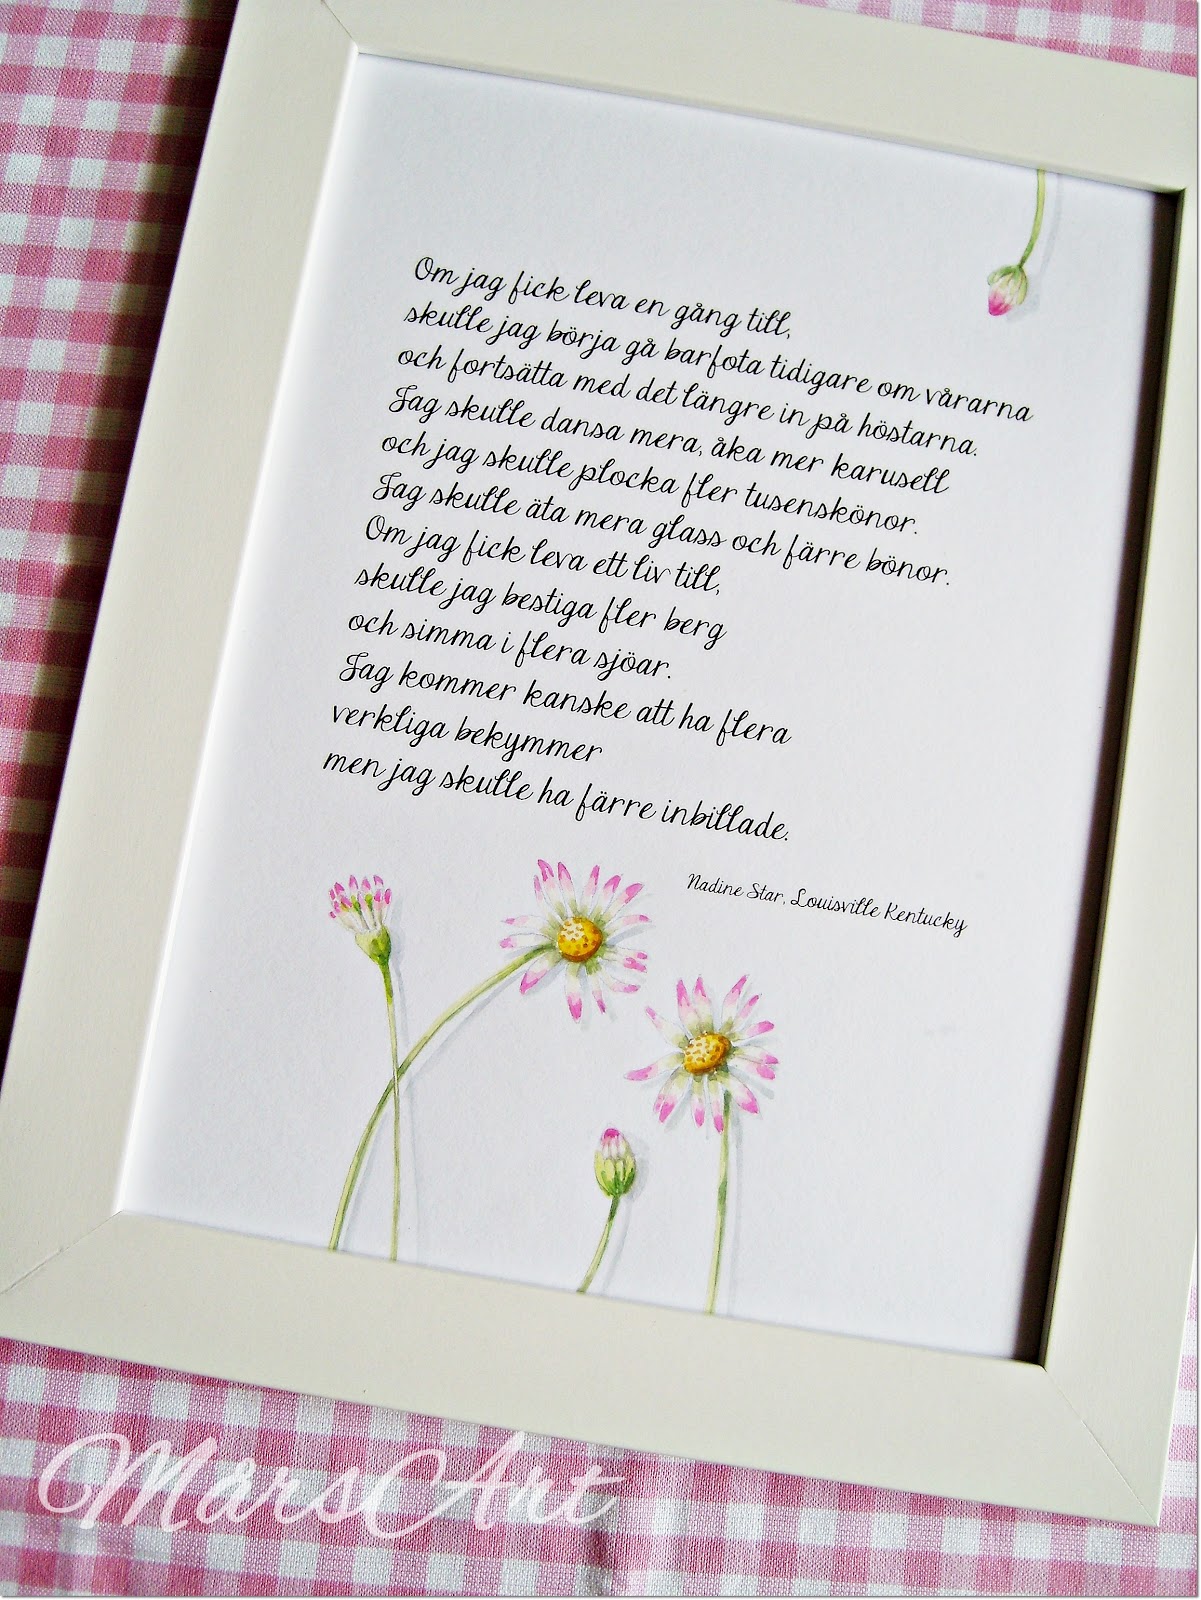 Om jag fick leva en gång till,
skulle jag börja gå barfota tidigare om vårarna
och fortsätta med det längre in på höstarna.
Jag skulle dansa mera, åka mer karusell
och jag skulle plocka fler tusenskönor.
Jag skulle äta mera glass och färre bönor.
Om jag fick leva ett liv till,
skulle jag bestiga fler berg
och simma i flera sjöar.
Jag kommer kanske att ha flera
verkliga bekymmer
men jag skulle ha färre inbillade.
Nadine Star, Louisville Kentucky
MårsArt